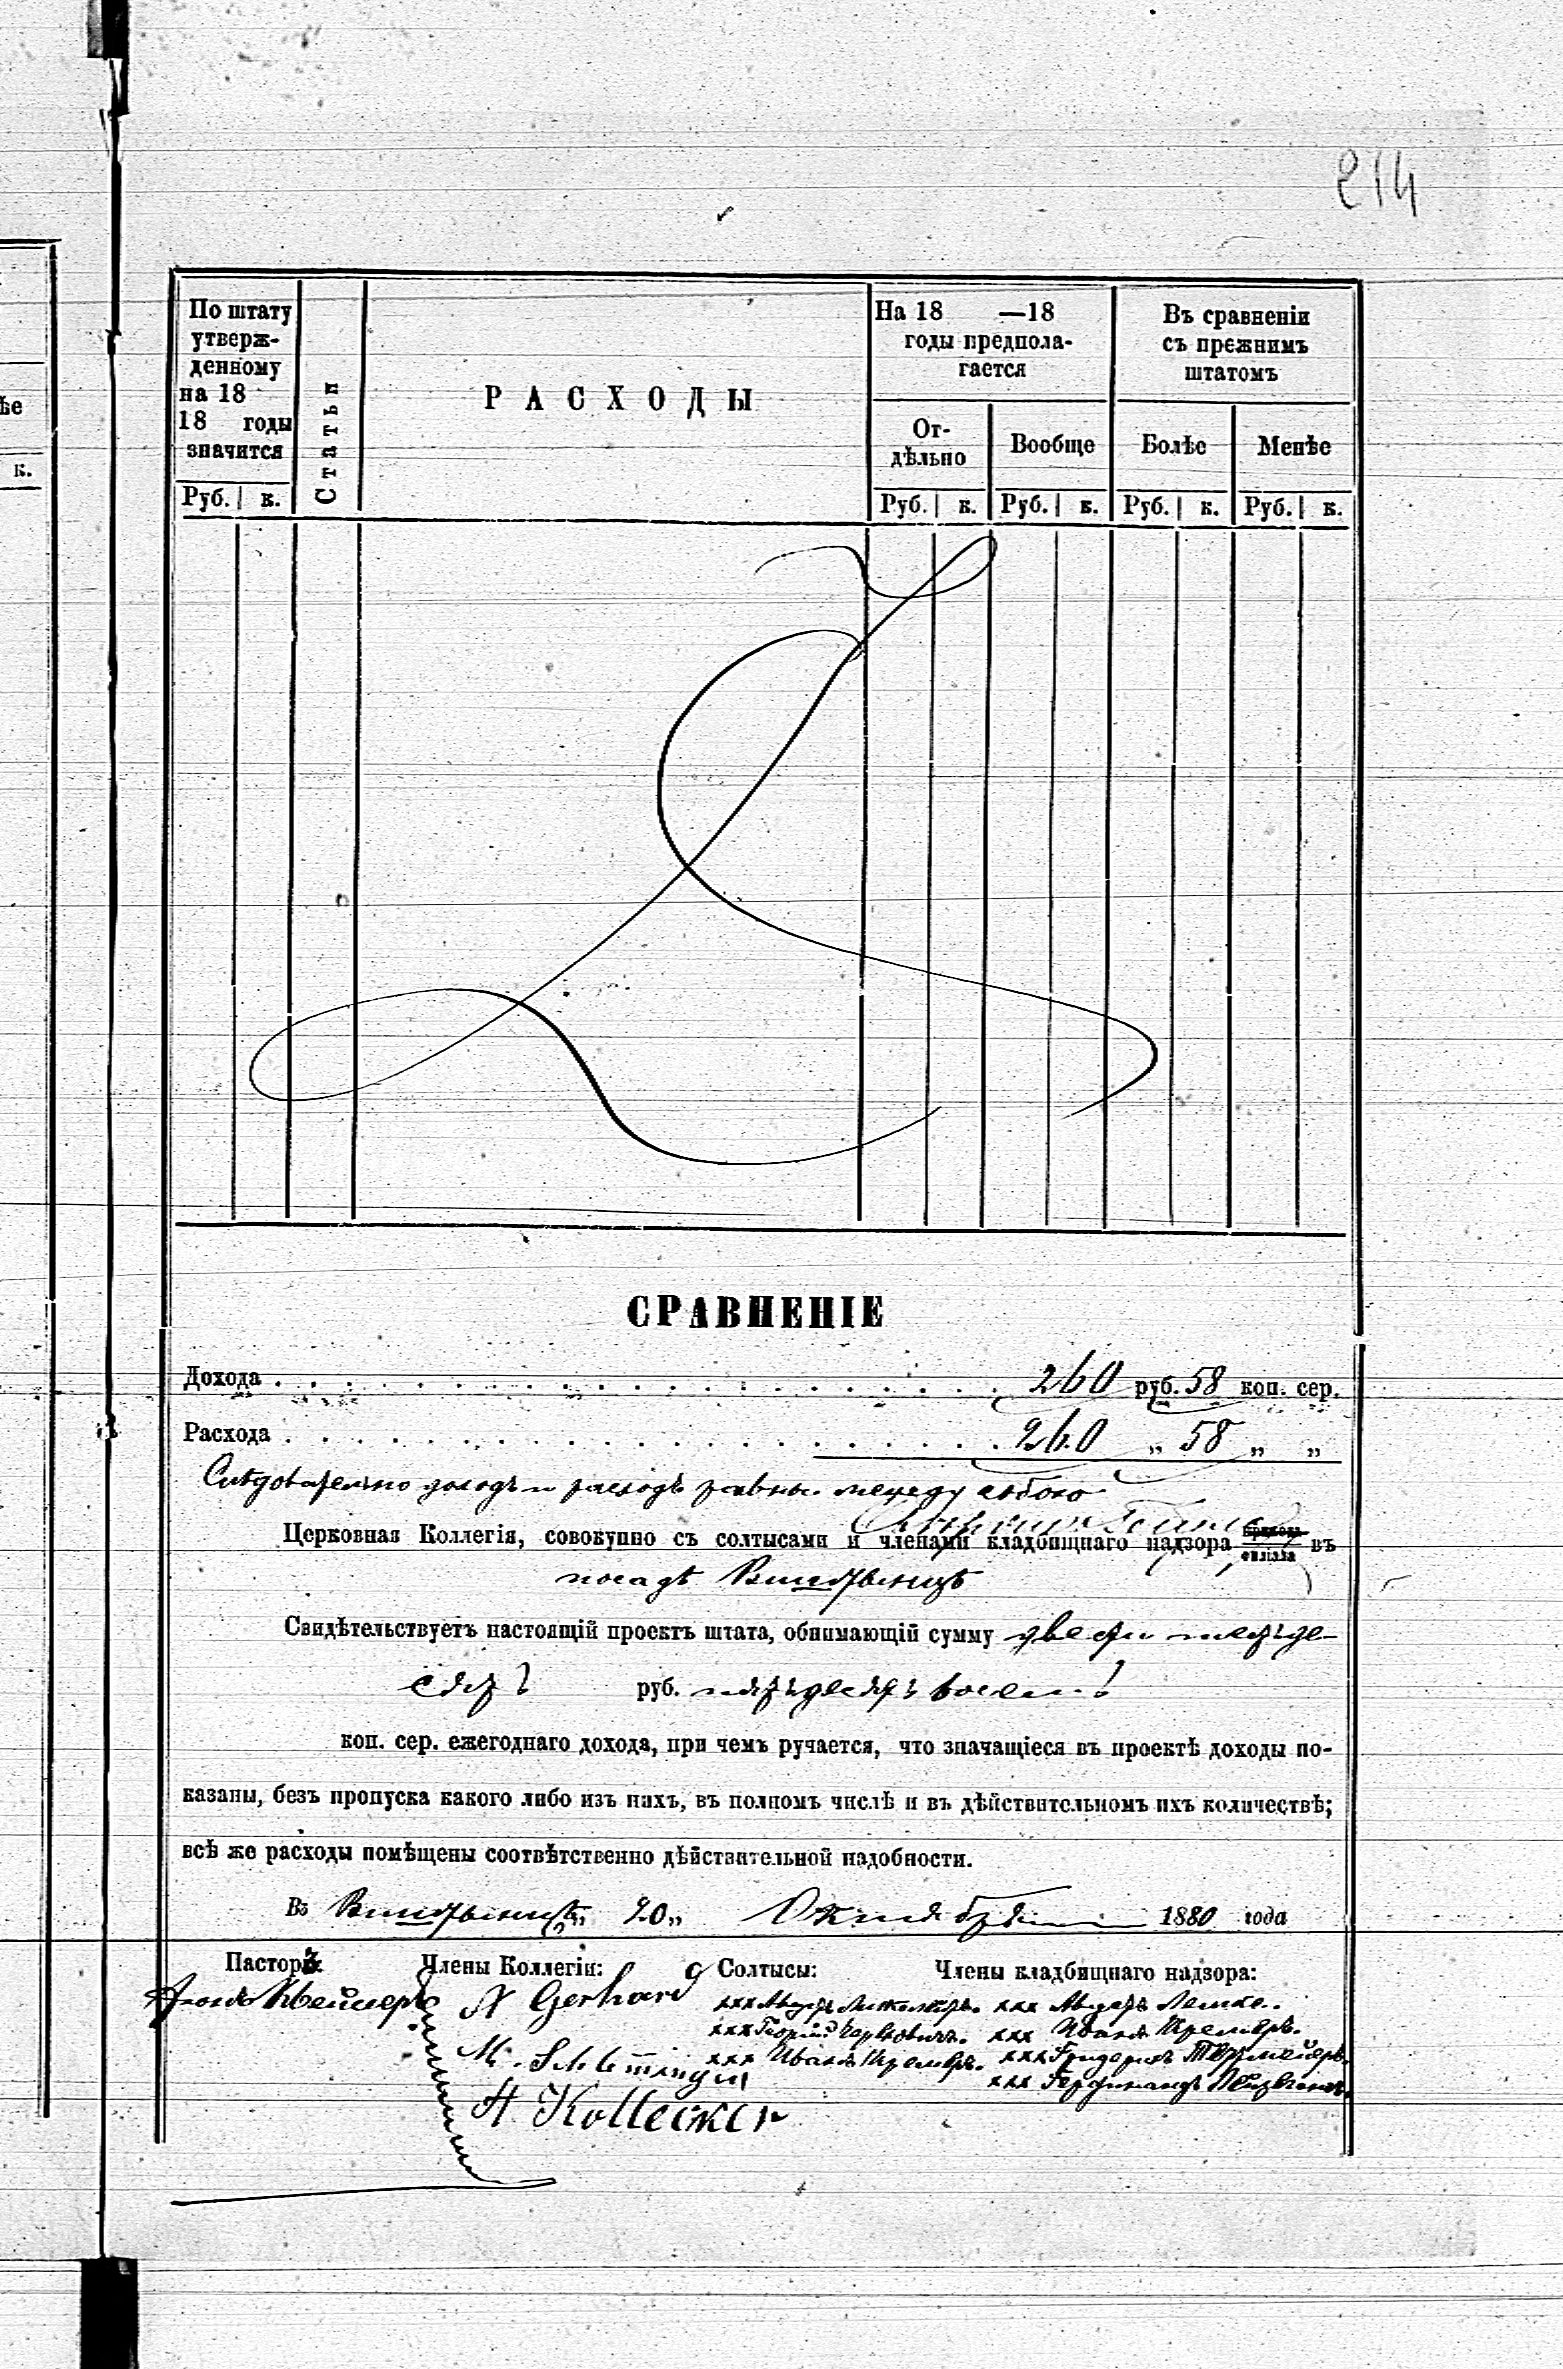 214
ѣе
к.
По штату
утверж-
денному
на 18
18 годы
значится
Статьи
РАСХОДЫ
На 18 —18
годы предпола-
гается
Въ сравненіи
съ прежнимъ
штатомъ
От-
дѣльно
Вообще
Болѣе
Менѣе
Руб. к.
Руб. к.
Руб. к.
Руб. к.
Руб. к.
СРАВНЕНІЕ
Дохода . . . . . . . . . . . . . . . . . . . . . 260 руб. 58 коп. сер.
Расхода . . . . . . . . . . . . . . . . . . . . . 260 „ 58 „ „
Слѣдовательно доходъ и расходъ равны между собою
Церковная Коллегія, совокупно съ солтысами и членами кладбищнаго надзора прихода филіала въ
посадѣ Виштынцѣ
Свидѣтельствуетъ настоящій проектъ штата, обнимающій сумму двести шестьде-
сятъ руб. пятьдесятъ восемь
коп. сер. ежегоднаго дохода, при чемъ ручается, что значащіеся въ проектѣ доходы по-
казаны, безъ пропуска какого либо изъ нихъ, въ полномъ числѣ и въ дѣйствительномъ ихъ количествѣ;
всѣ же расходы помѣщены соотвѣтственно дѣйствительной надобности.
Въ Виштынцѣ „20„ Октября 1880 года
Пасторъ
Члены Коллегіи:
Солтысы:
Члены кладбищнаго надзора:
Gerhard
xxx
xxx Георгій
xxx Иванъ Кремеръ.
M.
A. Kollecker
xxx Лемке.
xxx Иванъ Кремеръ.
xxx Фридерихъ
xxx Фердинандъ